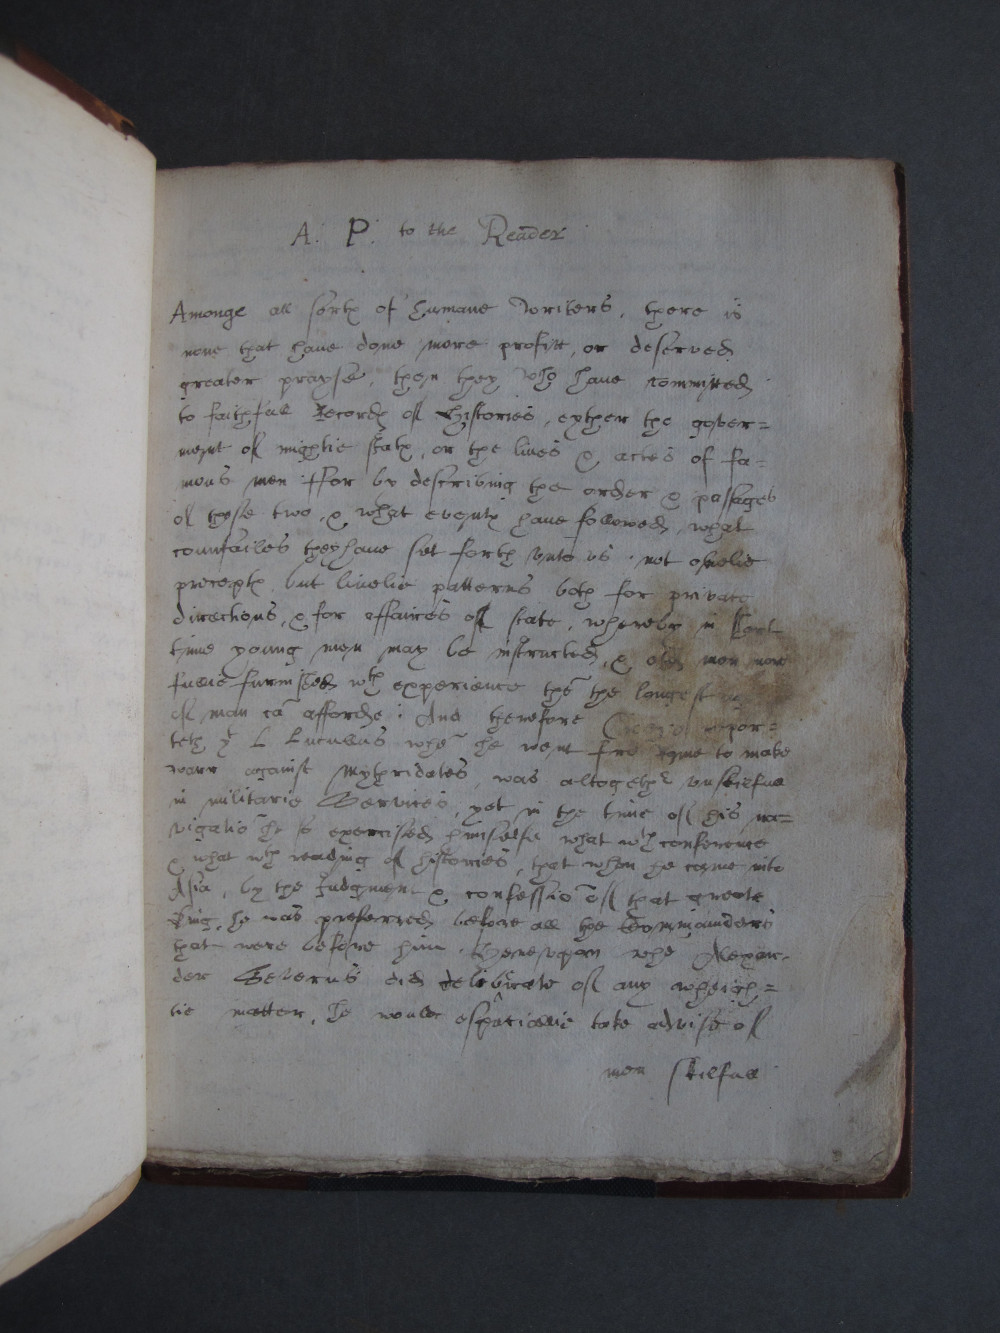 A. P. to the Reader
Amonge all sorts of humane Writers, there is
none that have done more profitt, or deserved
greater prayse, then they who have committed
to faithfull Records of Histories, eyther the gover=
ment of mightie stats, or the lives & actes of fa=
mous men : ffor by describing the order & passages
of those two, & what events have followed, what
counsailes they have set forth unto us. not onelie
precepts but livelie patterns both for private
directions, & for affaires of state, whereby in short
time young men may be instructed, & olde men more
fullie furnished wth experience thē the longest
of man cā afforde : And therefore Cicero repor=
teth yt L Lucullus whē he went frō Rome to make
warr against Mythridates, was altogether unskilfull
in militarie Services, yet in the time of his na=
vigatiō he so exercised himselfe what wth conference
& what wth reading of histories, that when he came into
Asia, by the Judgment & confessiō of that greate
King, he was preferred before all the Commaunders
that were before him. Hereupon whē Alexan-
der Severus did deliberate of any wheigh=
tie matter, he would especiallie take advise of
men skilfull